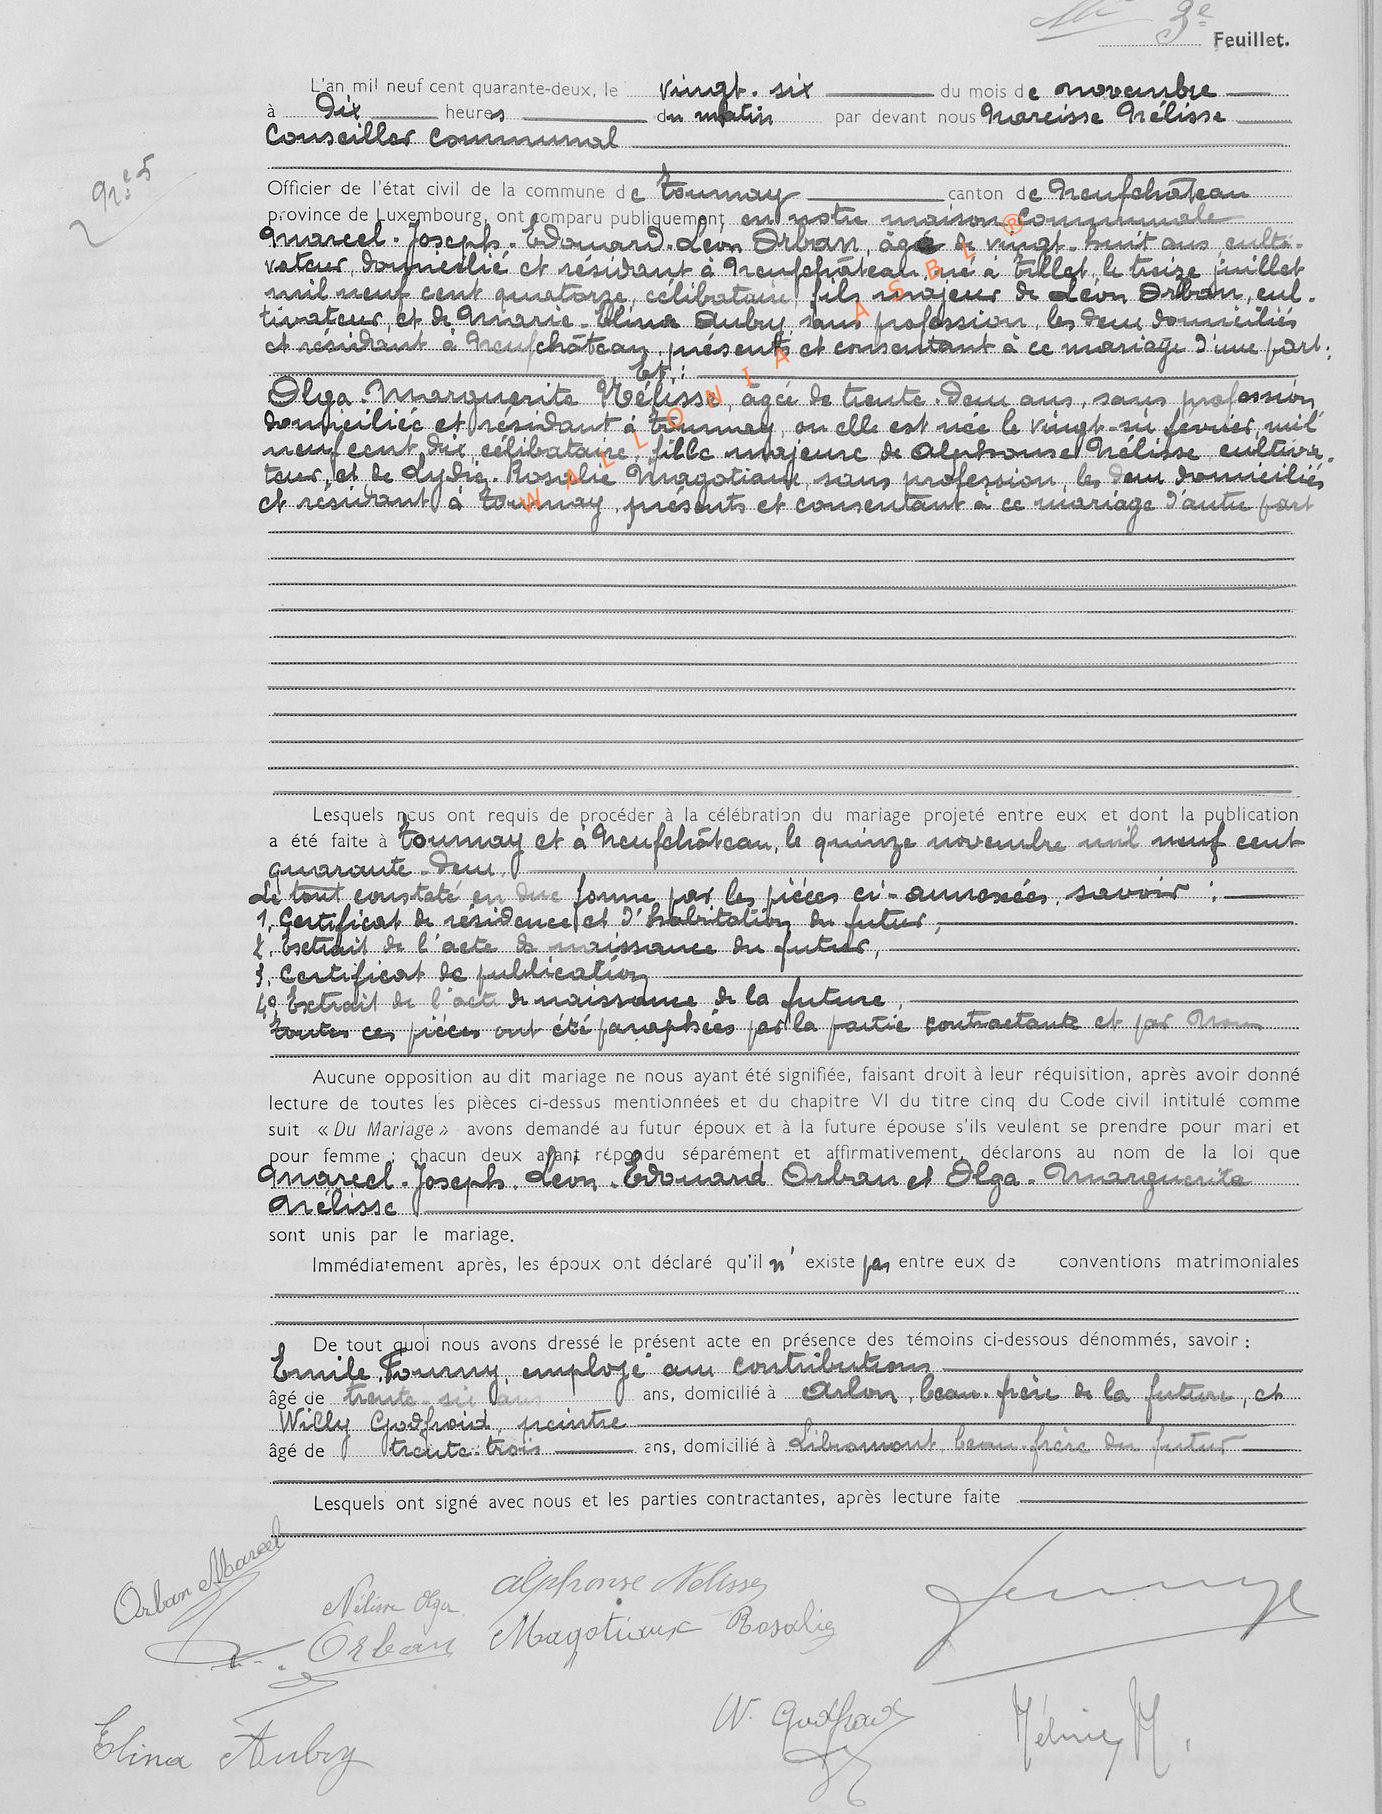 3e Feuillet.
L'an mil neuf cent quarante-deux, le vingt-six du mois de novembre
à Dix heures du matin par devant nous Narcisse Nélisse
Conseiller Communal
Nº 5
Officier de l'état civil de la commune de Tournay canton de Neufchâteau
province de Luxembourg, ont comparu publiquement, en notre maison Communale
Marcel-Joseph-Edouard-Léon Orban, âgé de vingt-huit ans culti-
vateur, domicilié et résidant à Neufchâteau, né à Tillet, le treize juillet
mil neuf cent quatorze, célibataire, fils majeur de Léon Orban, cul-
tivateur, et de Marie-Elina Aubry, sans profession, les deux domiciliés
et résidant à Neufchâteau, présents et consentant à ce mariage d'une part;
Et :
Olga-Marguerite Nélisse, âgée de trente-deux ans, sans profession,
domiciliée et résidant à Tournay, où elle est née le vingt-six février, mil
neuf cent dix, célibataire, fille majeure de Alphonse Nélisse cultiva-
teur, et de Lydie-Rosalie Magotiaux, sans profession, les deux domiciliés
et résidant à Tournay, présents et consentant à ce mariage d'autre part
WALLONIA ASBL ®
Lesquels nous ont requis de procéder à la célébration du mariage projeté entre eux et dont la publication
a été faite à Tournay et à Neufchâteau, le quinze novembre mil neuf cent
quarante-deux,
Le tout constaté en due forme par les pièces ci-annexées, savoir :
1. Certificat de résidence et d'habitation du futur,
2. Extrait de l'acte de naissance du futur,
3. Certificat de publication
4º Extrait de l'acte de naissance de la future,
Toutes ces pièces ont été paraphées par la partie contractante et par Nous
Aucune opposition au dit mariage ne nous ayant été signifiée, faisant droit à leur réquisition, après avoir donné
lecture de toutes les pièces ci-dessus mentionnées et du chapitre VI du titre cinq du Code civil intitulé comme
suit « Du Mariage » avons demandé au futur époux et à la future épouse s'ils veulent se prendre pour mari et
pour femme ; chacun deux ayant répondu séparément et affirmativement, déclarons au nom de la loi que
Marcel-Joseph-Léon-Edouard Orban et Olga-Marguerite
Nélisse
sont unis par le mariage.
Immédiatement après, les époux ont déclaré qu'il n'existe pas entre eux de conventions matrimoniales
De tout quoi nous avons dressé le présent acte en présence des témoins ci-dessous dénommés, savoir :
Emile Fourny, employé aux contributions
âgé de trente-six ans ans, domicilié à Arlon, beau-frère de la future, et
Willy Godfroid, peintre
âgé de trente-trois ans, domicilié à Libramont, beau-frère du futur
Lesquels ont signé avec nous et les parties contractantes, après lecture faite
Orban Marcel
Nélisse Olga
Alphonse Nelisse
Orban
Magotiaux Rosalie
Elina Aubry
W. Godfroid